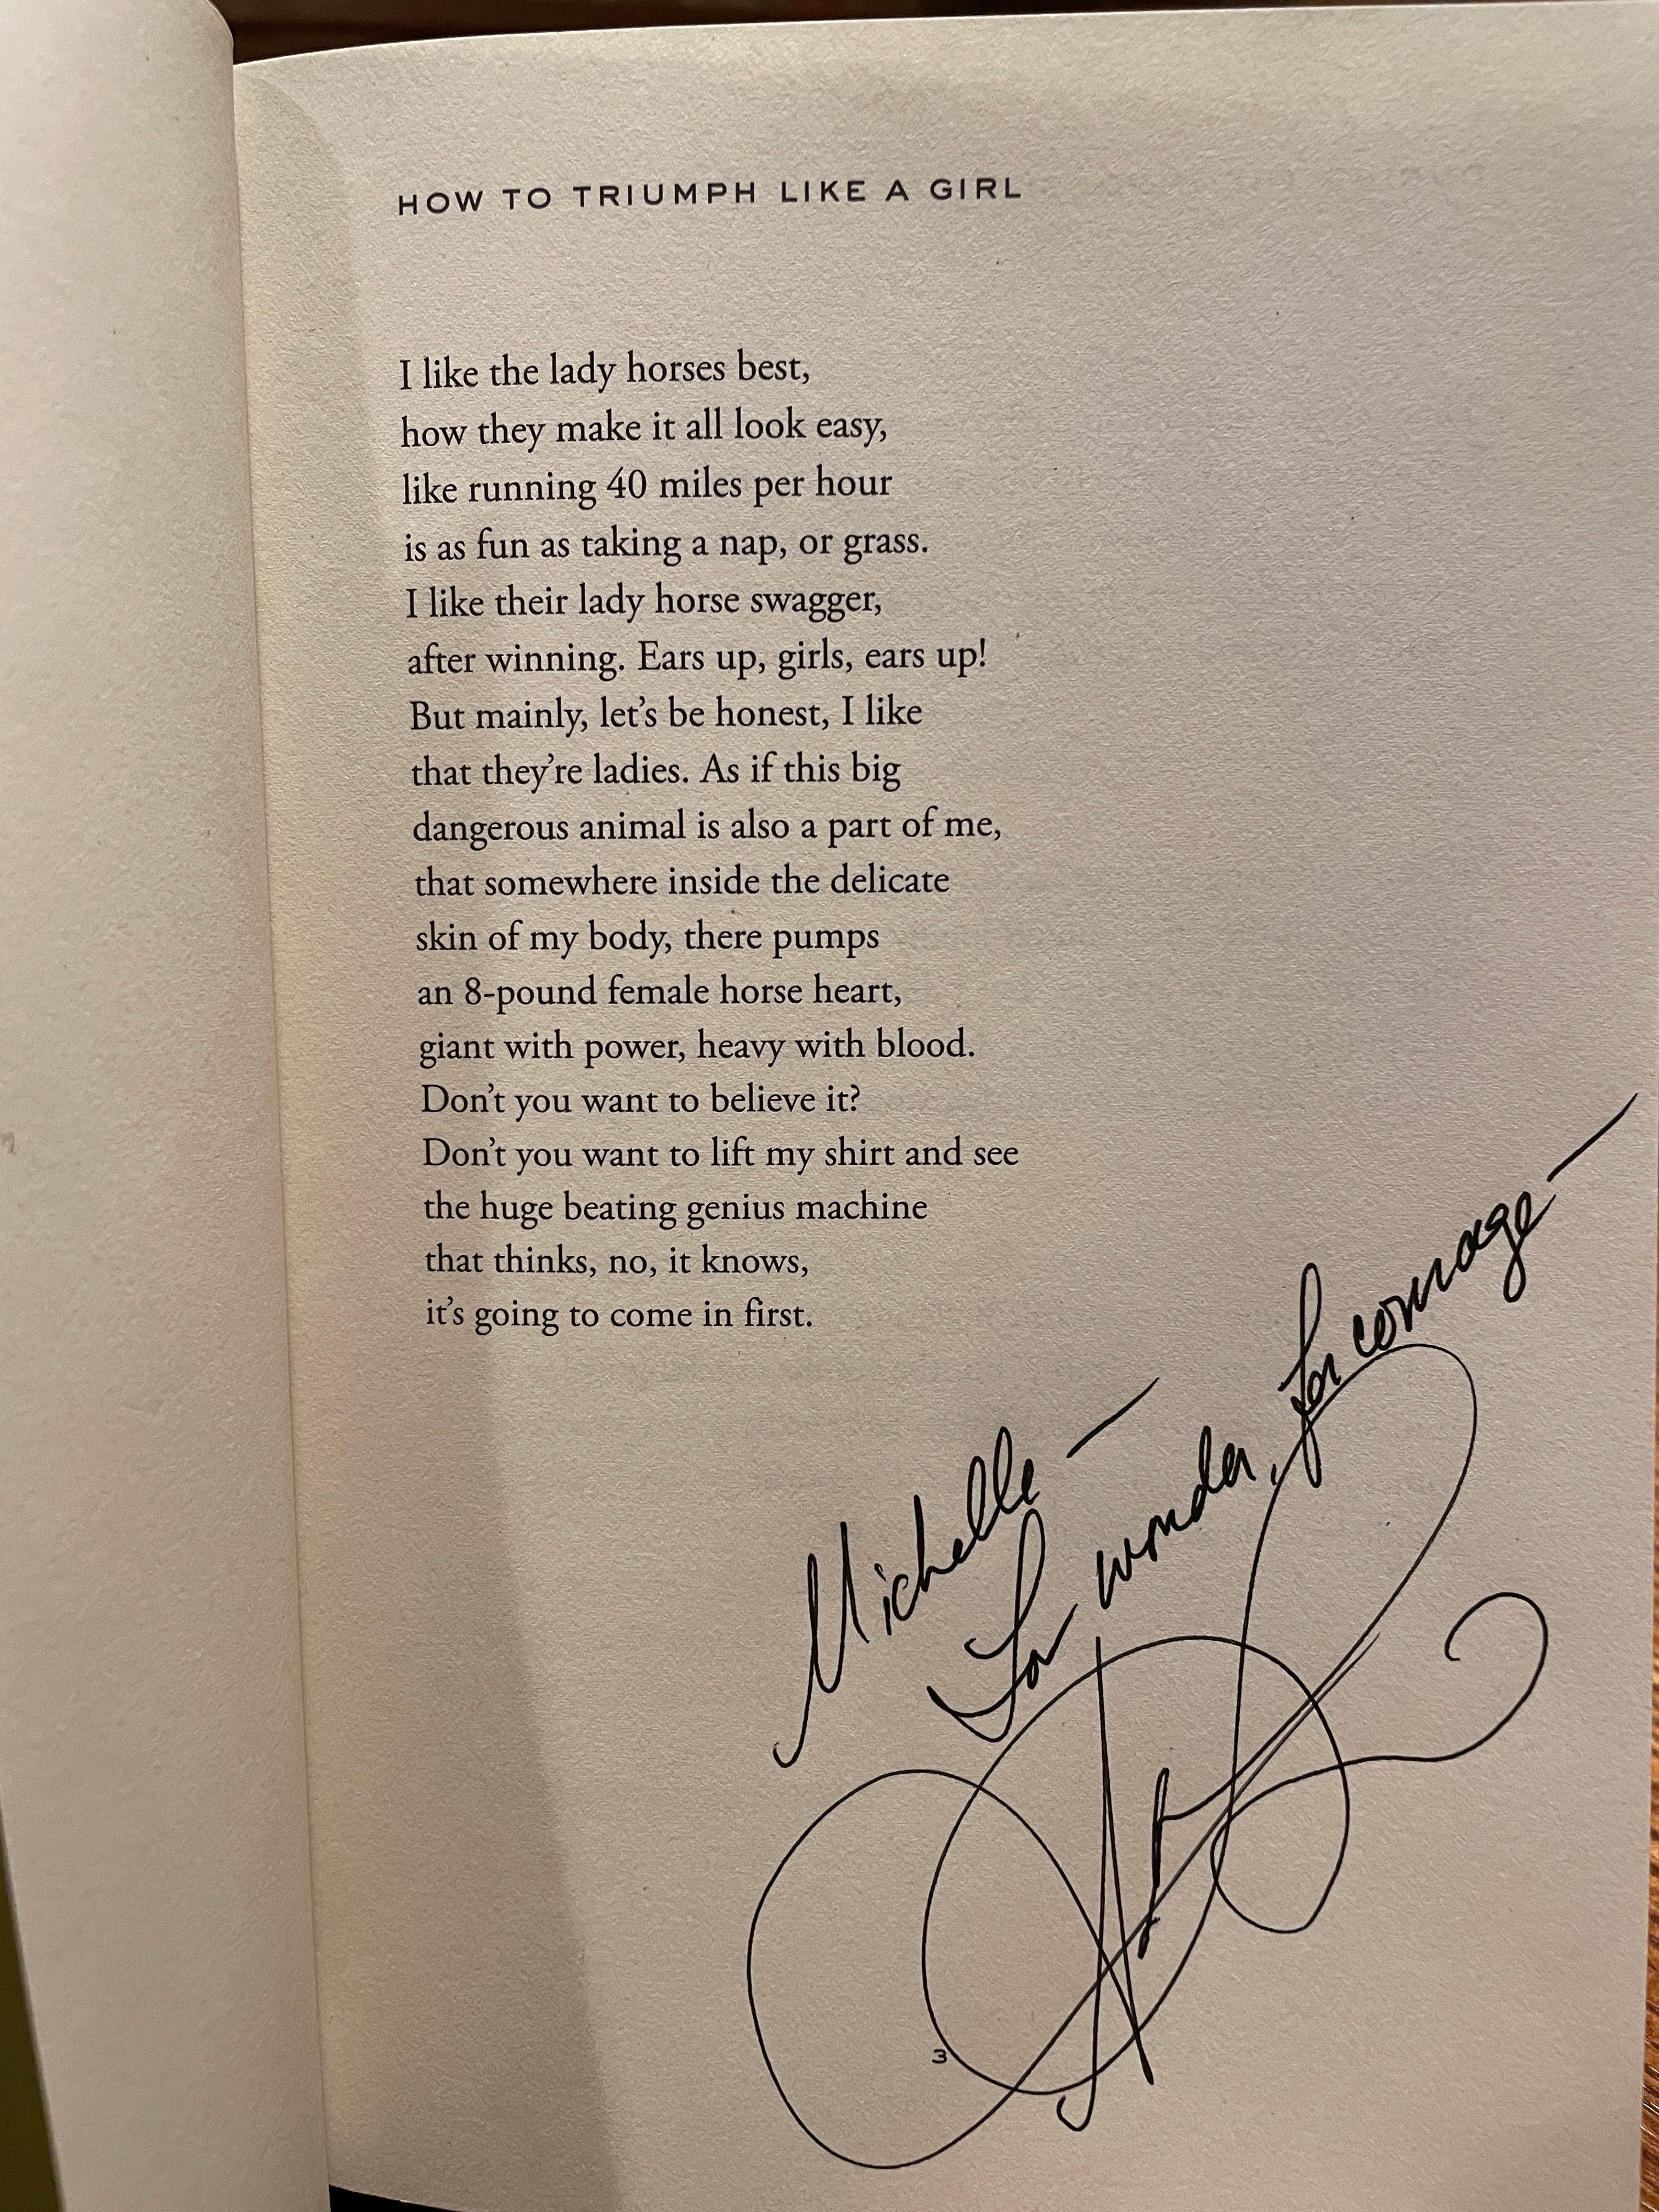 HOW TO TRIUMPH LIKE A GIRL
I like the lady horses best,
how they make it all look easy,
like running 40 miles per hour
is as fun as taking a nap, or grass.
I like their lady horse swagger,
after winning. Ears up, girls, ears up!
But mainly, let's be honest, I like
that they're ladies. As if this big
dangerous animal is also a part of me,
that somewhere inside the delicate
skin of my body, there pumps
an 8-pound female horse heart,
giant with power, heavy with blood.
Don't you want to believe it?
Don't you want to lift my shirt and see
the huge beating genius machine
that thinks, no, it knows,
it's going to come in first.
Michelle—
For wonder, for courage—
3